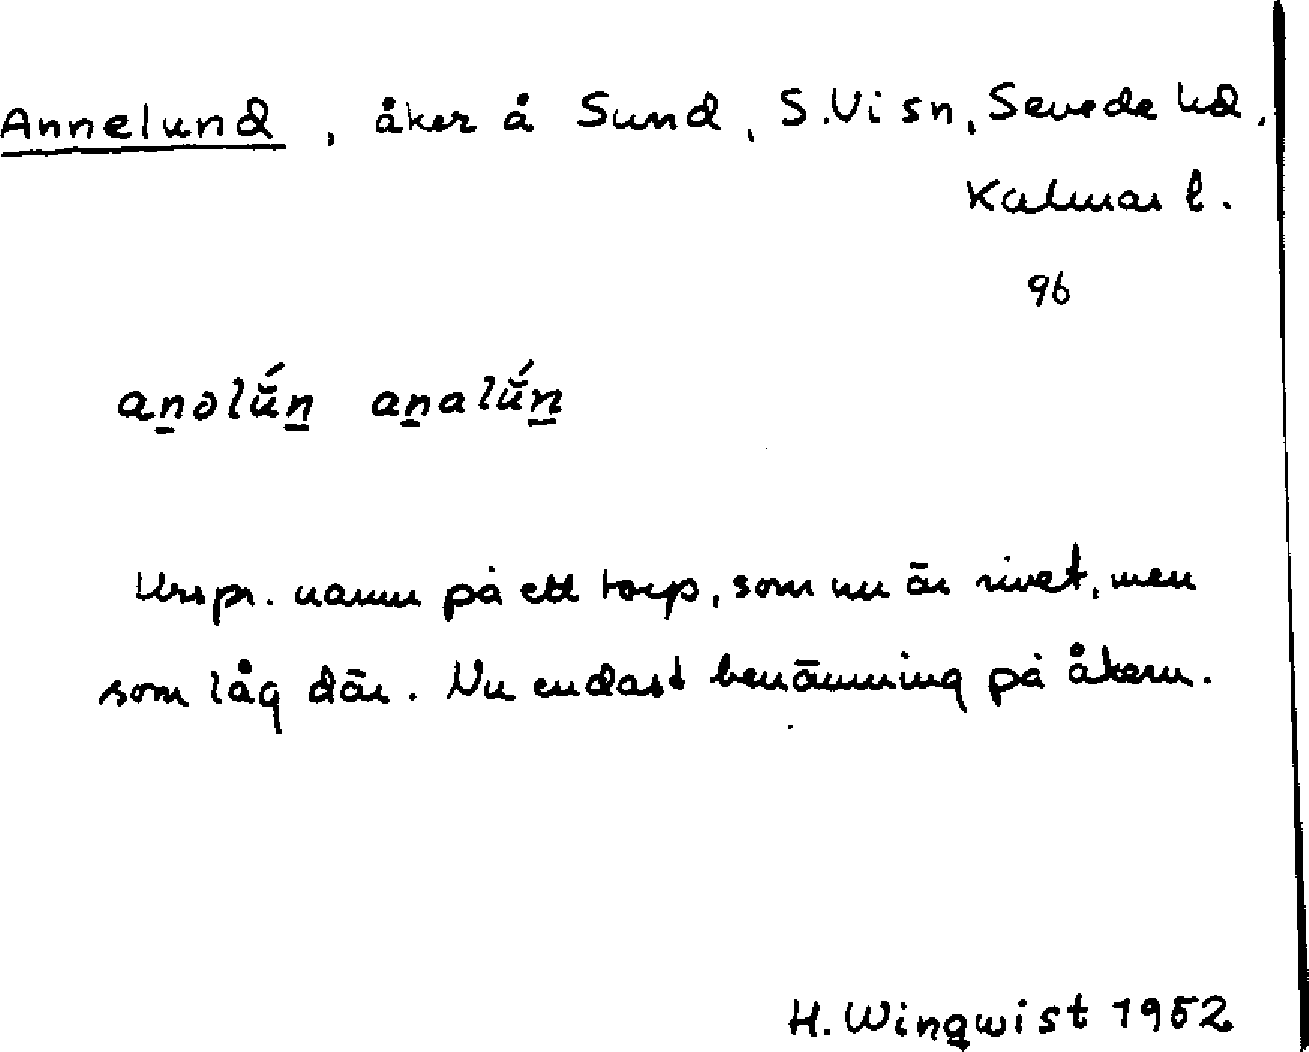 Annelund, åker å Sund, S.Vi sn, Sevede hd.
Kalmar l.
96
anəlún analún
Urspr. namn på ett torp, som nu är rivet, men
som låg där. Nu endast benämning på åkern.
H. Winqwist 1952